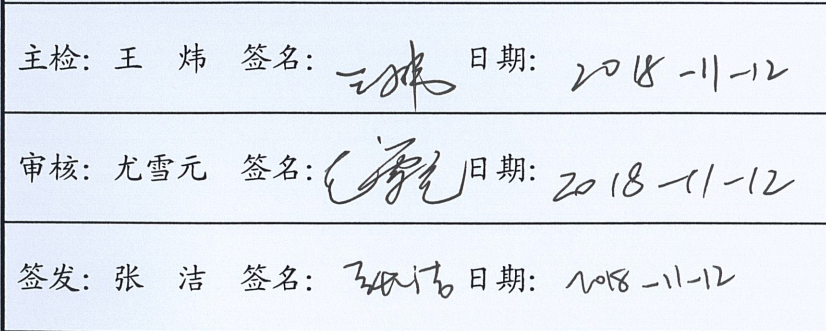 主检：王 炜 签名：王炜 日期：2018-11-12
审核：尤雪元 签名：尤雪元 日期：2018-11-12
签发：张 洁 签名：张洁 日期：2018-11-12